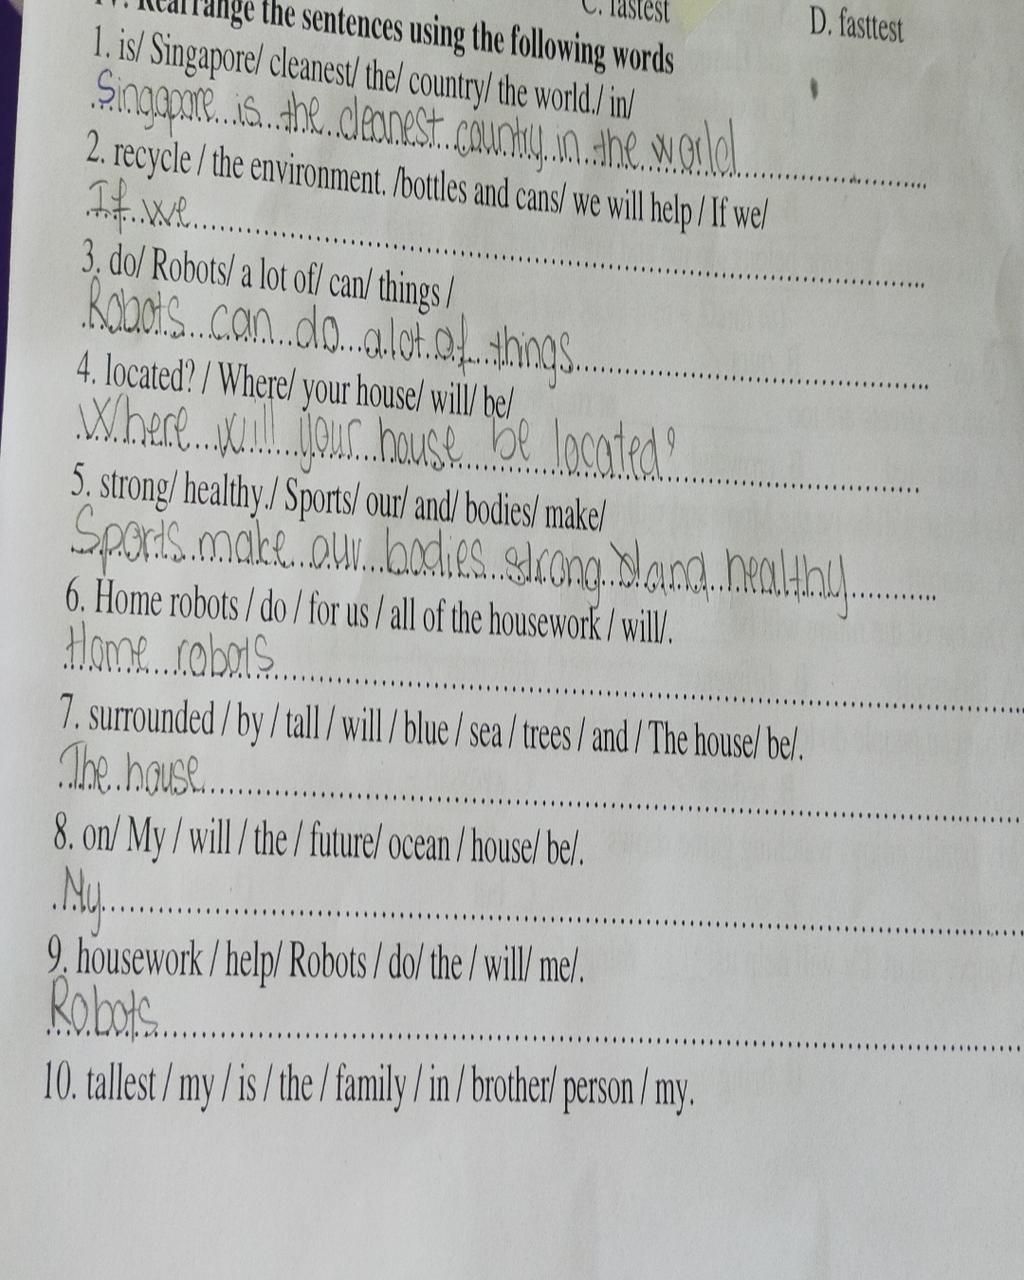 C. fastest
D. fasttest
IV. Rearrange the sentences using the following words
1. is/ Singapore/ cleanest/ the/ country/ the world./ in/
Singapore is the cleanest country in the world
2. recycle / the environment. /bottles and cans/ we will help / If we/
If we
3. do/ Robots/ a lot of/ can/ things /
Robots can do a lot of things
4. located? / Where/ your house/ will/ be/
Where will your house be located?
5. strong/ healthy./ Sports/ our/ and/ bodies/ make/
Sports make our bodies strong and healthy
6. Home robots / do / for us / all of the housework / will/.
Home robots
7. surrounded / by / tall / will / blue / sea / trees / and / The house/ be/.
The house
8. on/ My / will / the / future/ ocean / house/ be/.
My
9. housework / help/ Robots / do/ the / will/ me/.
Robots
10. tallest / my / is / the / family / in / brother/ person / my.